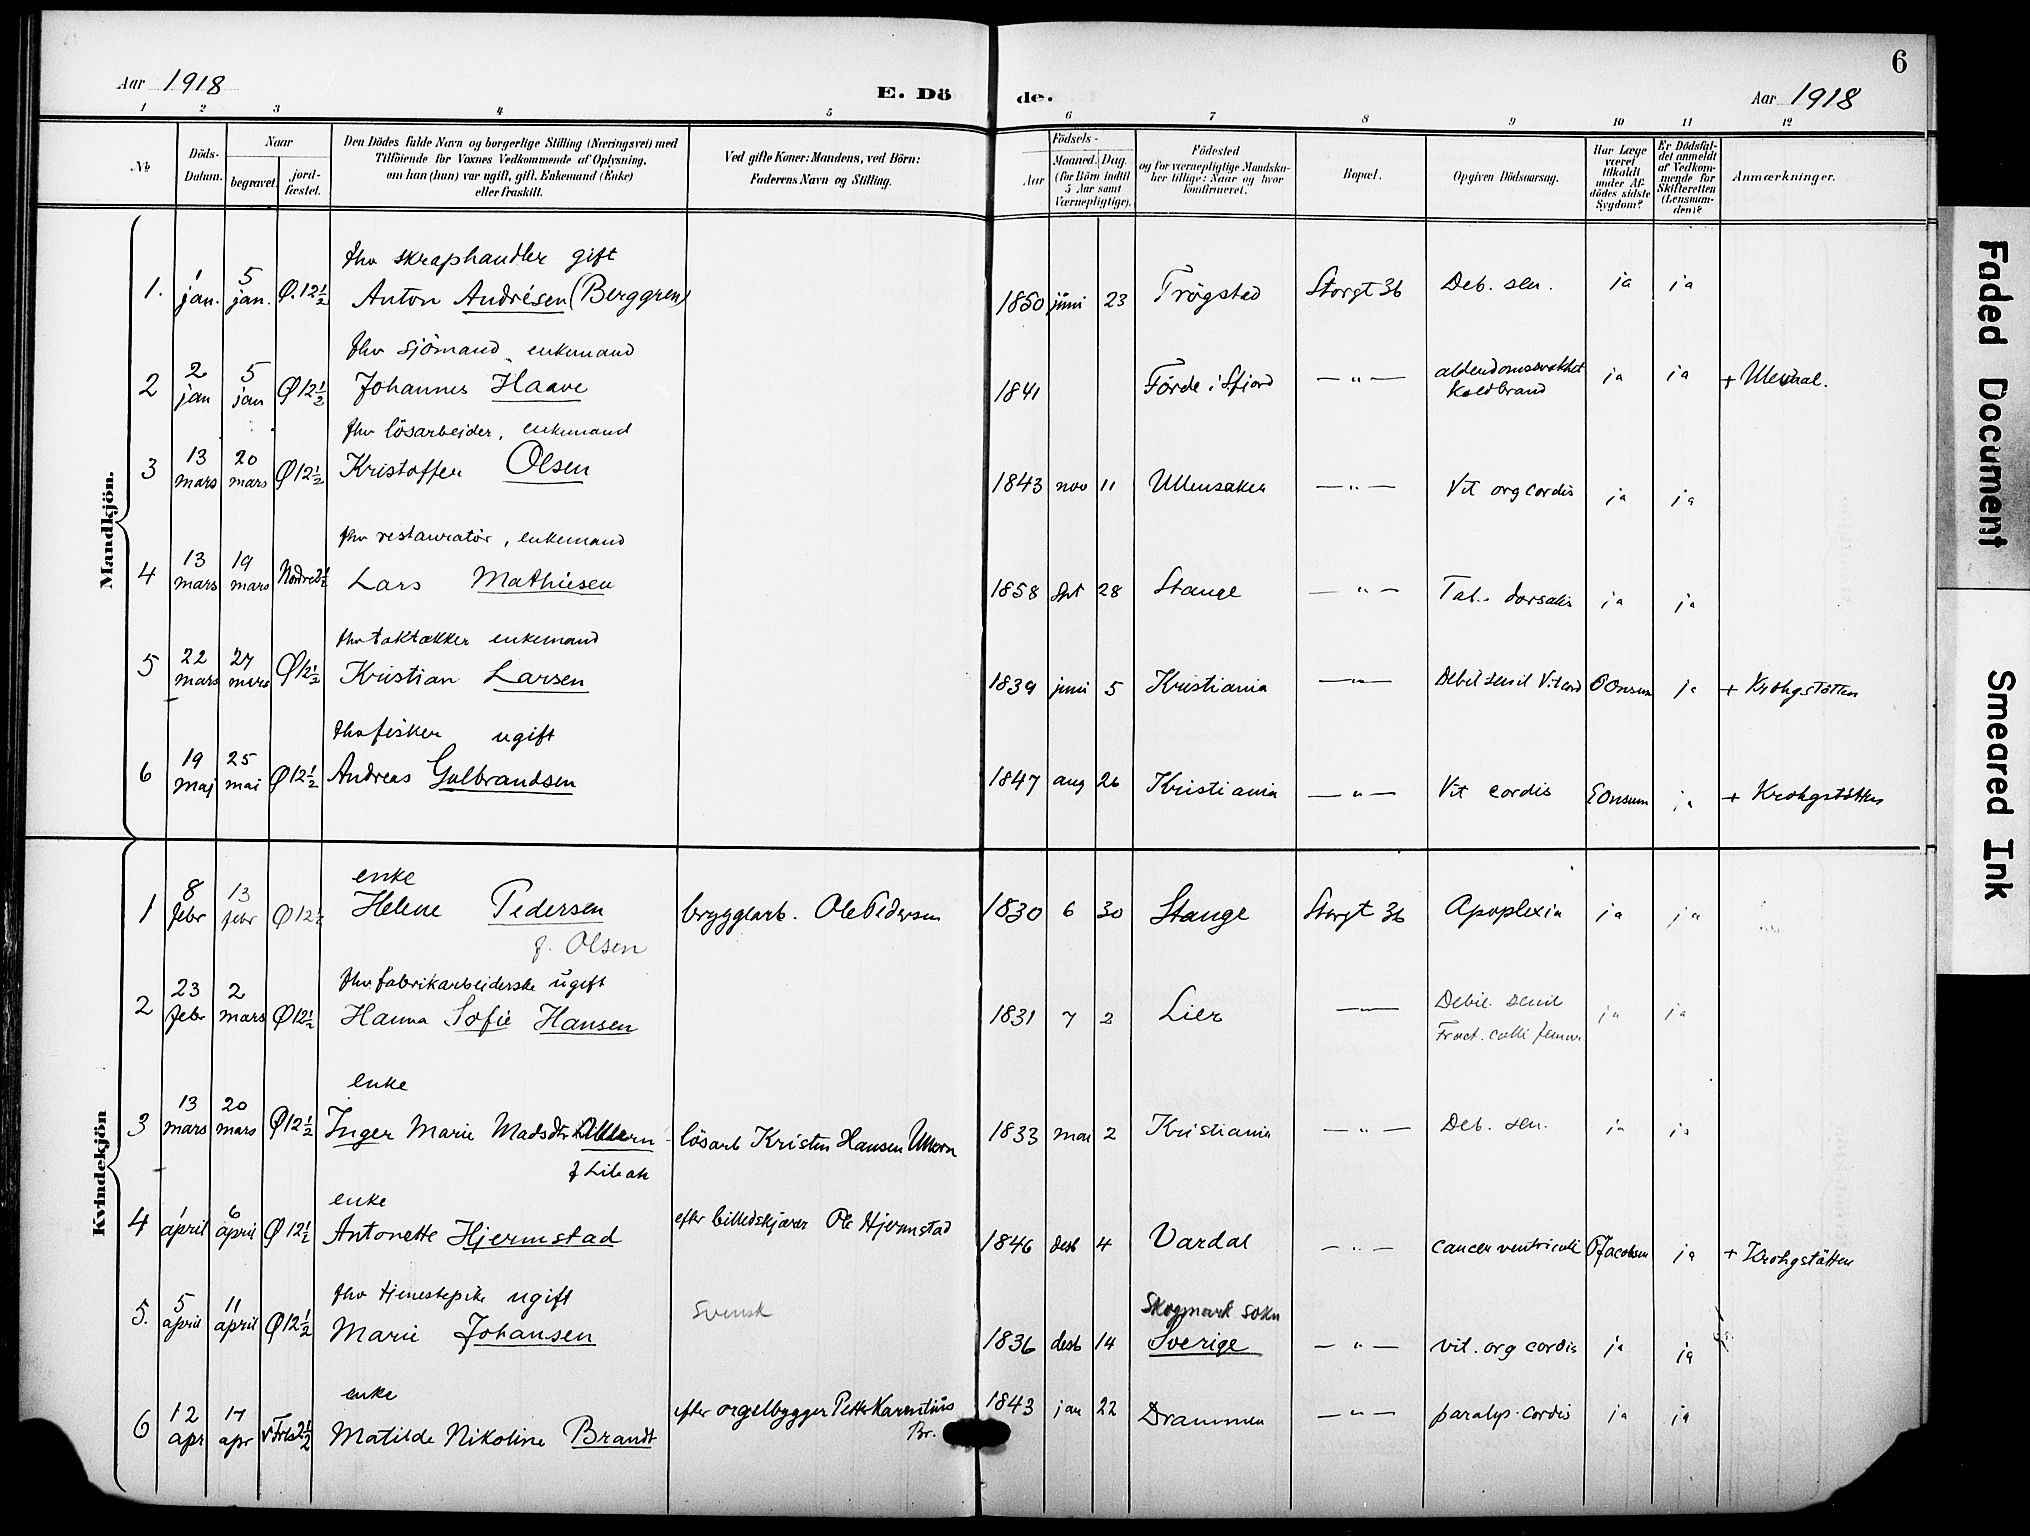 6
Aar 1918
E. Dö de.
Aar 1918
1 2 3 4 5 6 7 8 9 10 11 12
№
Döds-Datum.
Naar
begravet.
jord-fæstet.
Den Dödes fulde Navn og borgerlige Stilling (Næringsvei) med
Tilföiende for Voxnes Vedkommende af Oplysning,
om han (hun) var ugift, gift, Enkemand (Enke)
eller fraskilt.
Ved gifte Koner: Mandens, ved Börn:
Faderens Navn og Stilling.
Födsels-
Aar Maaned. Dag.
(for Börn indtil
5 Aar samt
Værnepligtige).
Födested
og for værnepligtige Mandska-
ber tillige: Naar og hvor
konfirmeret.
Bopæl.
Opgiven Dödsaarsag.
Har Læge
været
tilkaldt
under Af-
dödes sidste
Sygdom?
Er Dödsfal-
det anmeldt
af Vedkom-
mende for
Skifteretten
(Lensman-
den)?
Anmærkninger.
Mandkjön.
fhv skraphandler gift
1. 1 jan. 5 jan. Ø. 12½ Anton Andrésen (Berggren) 1850 juni 23 Trögstad Storgt 36 Deb. sen. ja ja
fhv sjömand, enkemand
2 2 jan 5 jan Ø 12½ Johannes Haave 1841 Förde i Sfjord — " — alderdomssvakhet Koldbrand ja ja + Ullevaal.
fhv lösarbeider, enkemand
3 13 mars 20 mars Ø 12½ Kristoffer Olsen 1843 nov 11 Ullensaker — " — Vit org cordis ja ja
fhv restauratör, enkemand
4 13 mars 19 mars Nordre 2½ Lars Mathiesen 1858 28 Stange — " — Tab. dorsalis ja ja
fhv taktækker enkemand
5 22 mars 27 mars Ø 12½ Kristian Larsen 1839 juni 5 Kristiania — " — Debil senil Vit cord ja + Krohgstötten
fhv fisker ugift
6 19 maj 25 mai Ø 12½ Andreas Gulbrandsen 1847 aug 26 Kristiania — " — Vit cordis ja + Krohgstötten
Kvindekjön
enke
1 8 febr 13 febr Ø 12½ Helene Pedersen bryggearb. Ole Pedersen 1830 6 30 Stange Storgt 36 Apoplexia ja ja
f. Olsen
fhv fabrikarbeiderske ugift
2 23 febr 2 mars Ø 12½ Hanna Sofie Hansen 1831 7 2 Lier — " — Debil. senil Fract. colli femur ja ja
enke
3 13 mars 20 mars Ø 12½ Inger Marie Madsdtr Ullern lösarb Kristen Hansen Ullern 1833 mai 2 Kristiania — " — Deb. sen. ja ja
enke
4 1 april 6 april Ø 12½ Antonette Hjermstad efter billedskjærer Ole Hjermstad 1846 desb 4 Vardal — " — cancer ventriculi O Jacobsen ja + Krohgstötten
fhv tjenestepike ugift
5. 5 april 11 april Ø 12½ Marie Johansen svensk 1836 desb 14 Skogmark sokn Sverige — " — vit. org cordis ja ja
enke
6 12 apr 17 apr V Frls 2½ Matilde Nikoline Brandt efter orgelbygger Petter Karentius Br. 1843 jan 22 Drammen — " — paralys. cordis ja ja
Faded Document
Smeared Ink